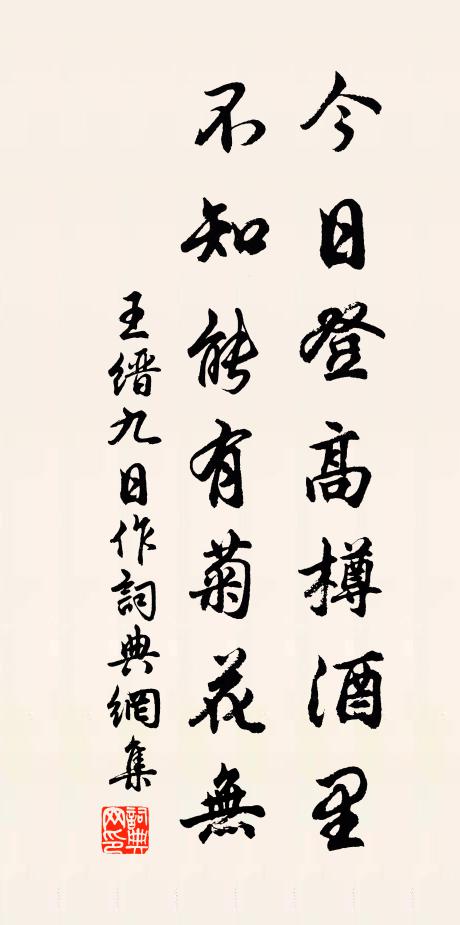 今日登高樽酒里
不知能有菊花無
王縉九日作詞典網集
詞典網印